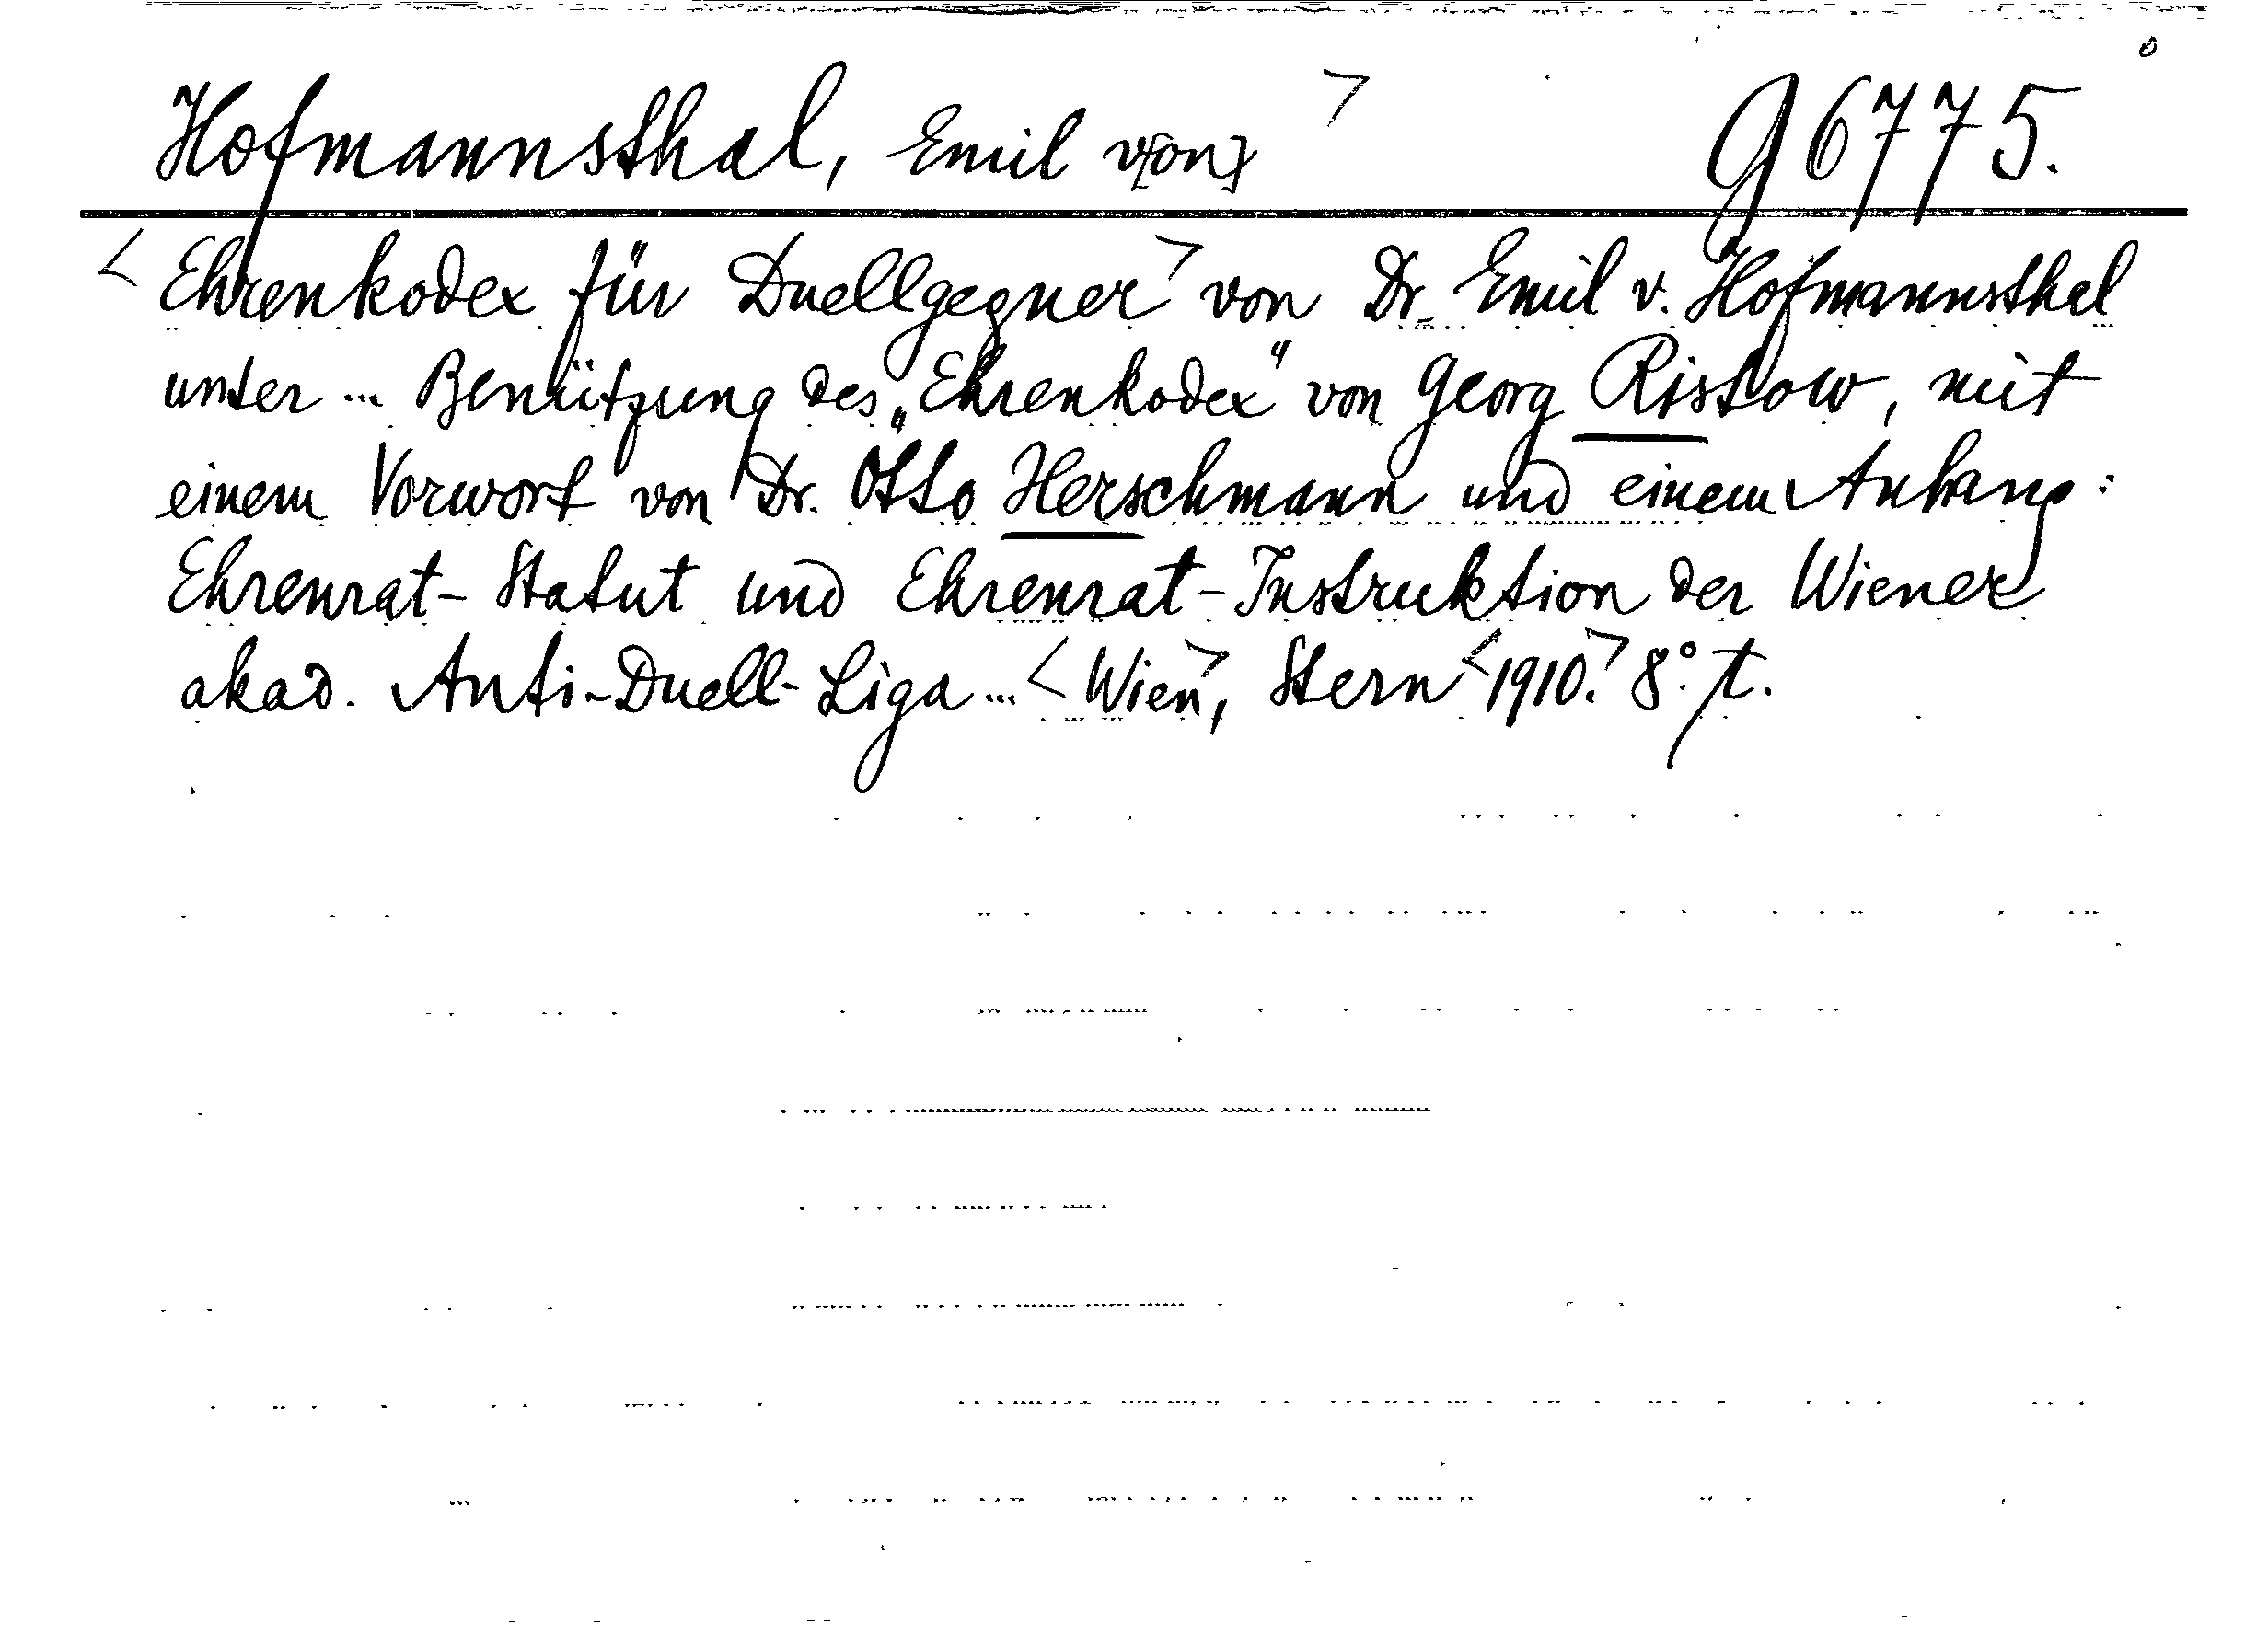 Hofmannsthal, Emil v[on] > g 6775.
< Ehrenkodex für Duellgegner > von Dr. Emil v. Hofmannsthal
unter ... Benützung des „Ehrenkodex“ von Georg Ristow, mit
einem Vorwort von Dr. Otto Herschmann und einem Anhang:
Ehrenrat-Statut und Ehrenrat-Instruktion der Wiener
akad. Anti-Duell-Liga ... < Wien >, Stern < 1910. > 8°. t.